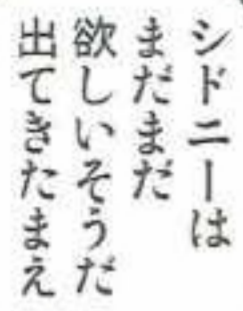 シドニーは
まだまだ
欲しいそうだ
出てきたまえ